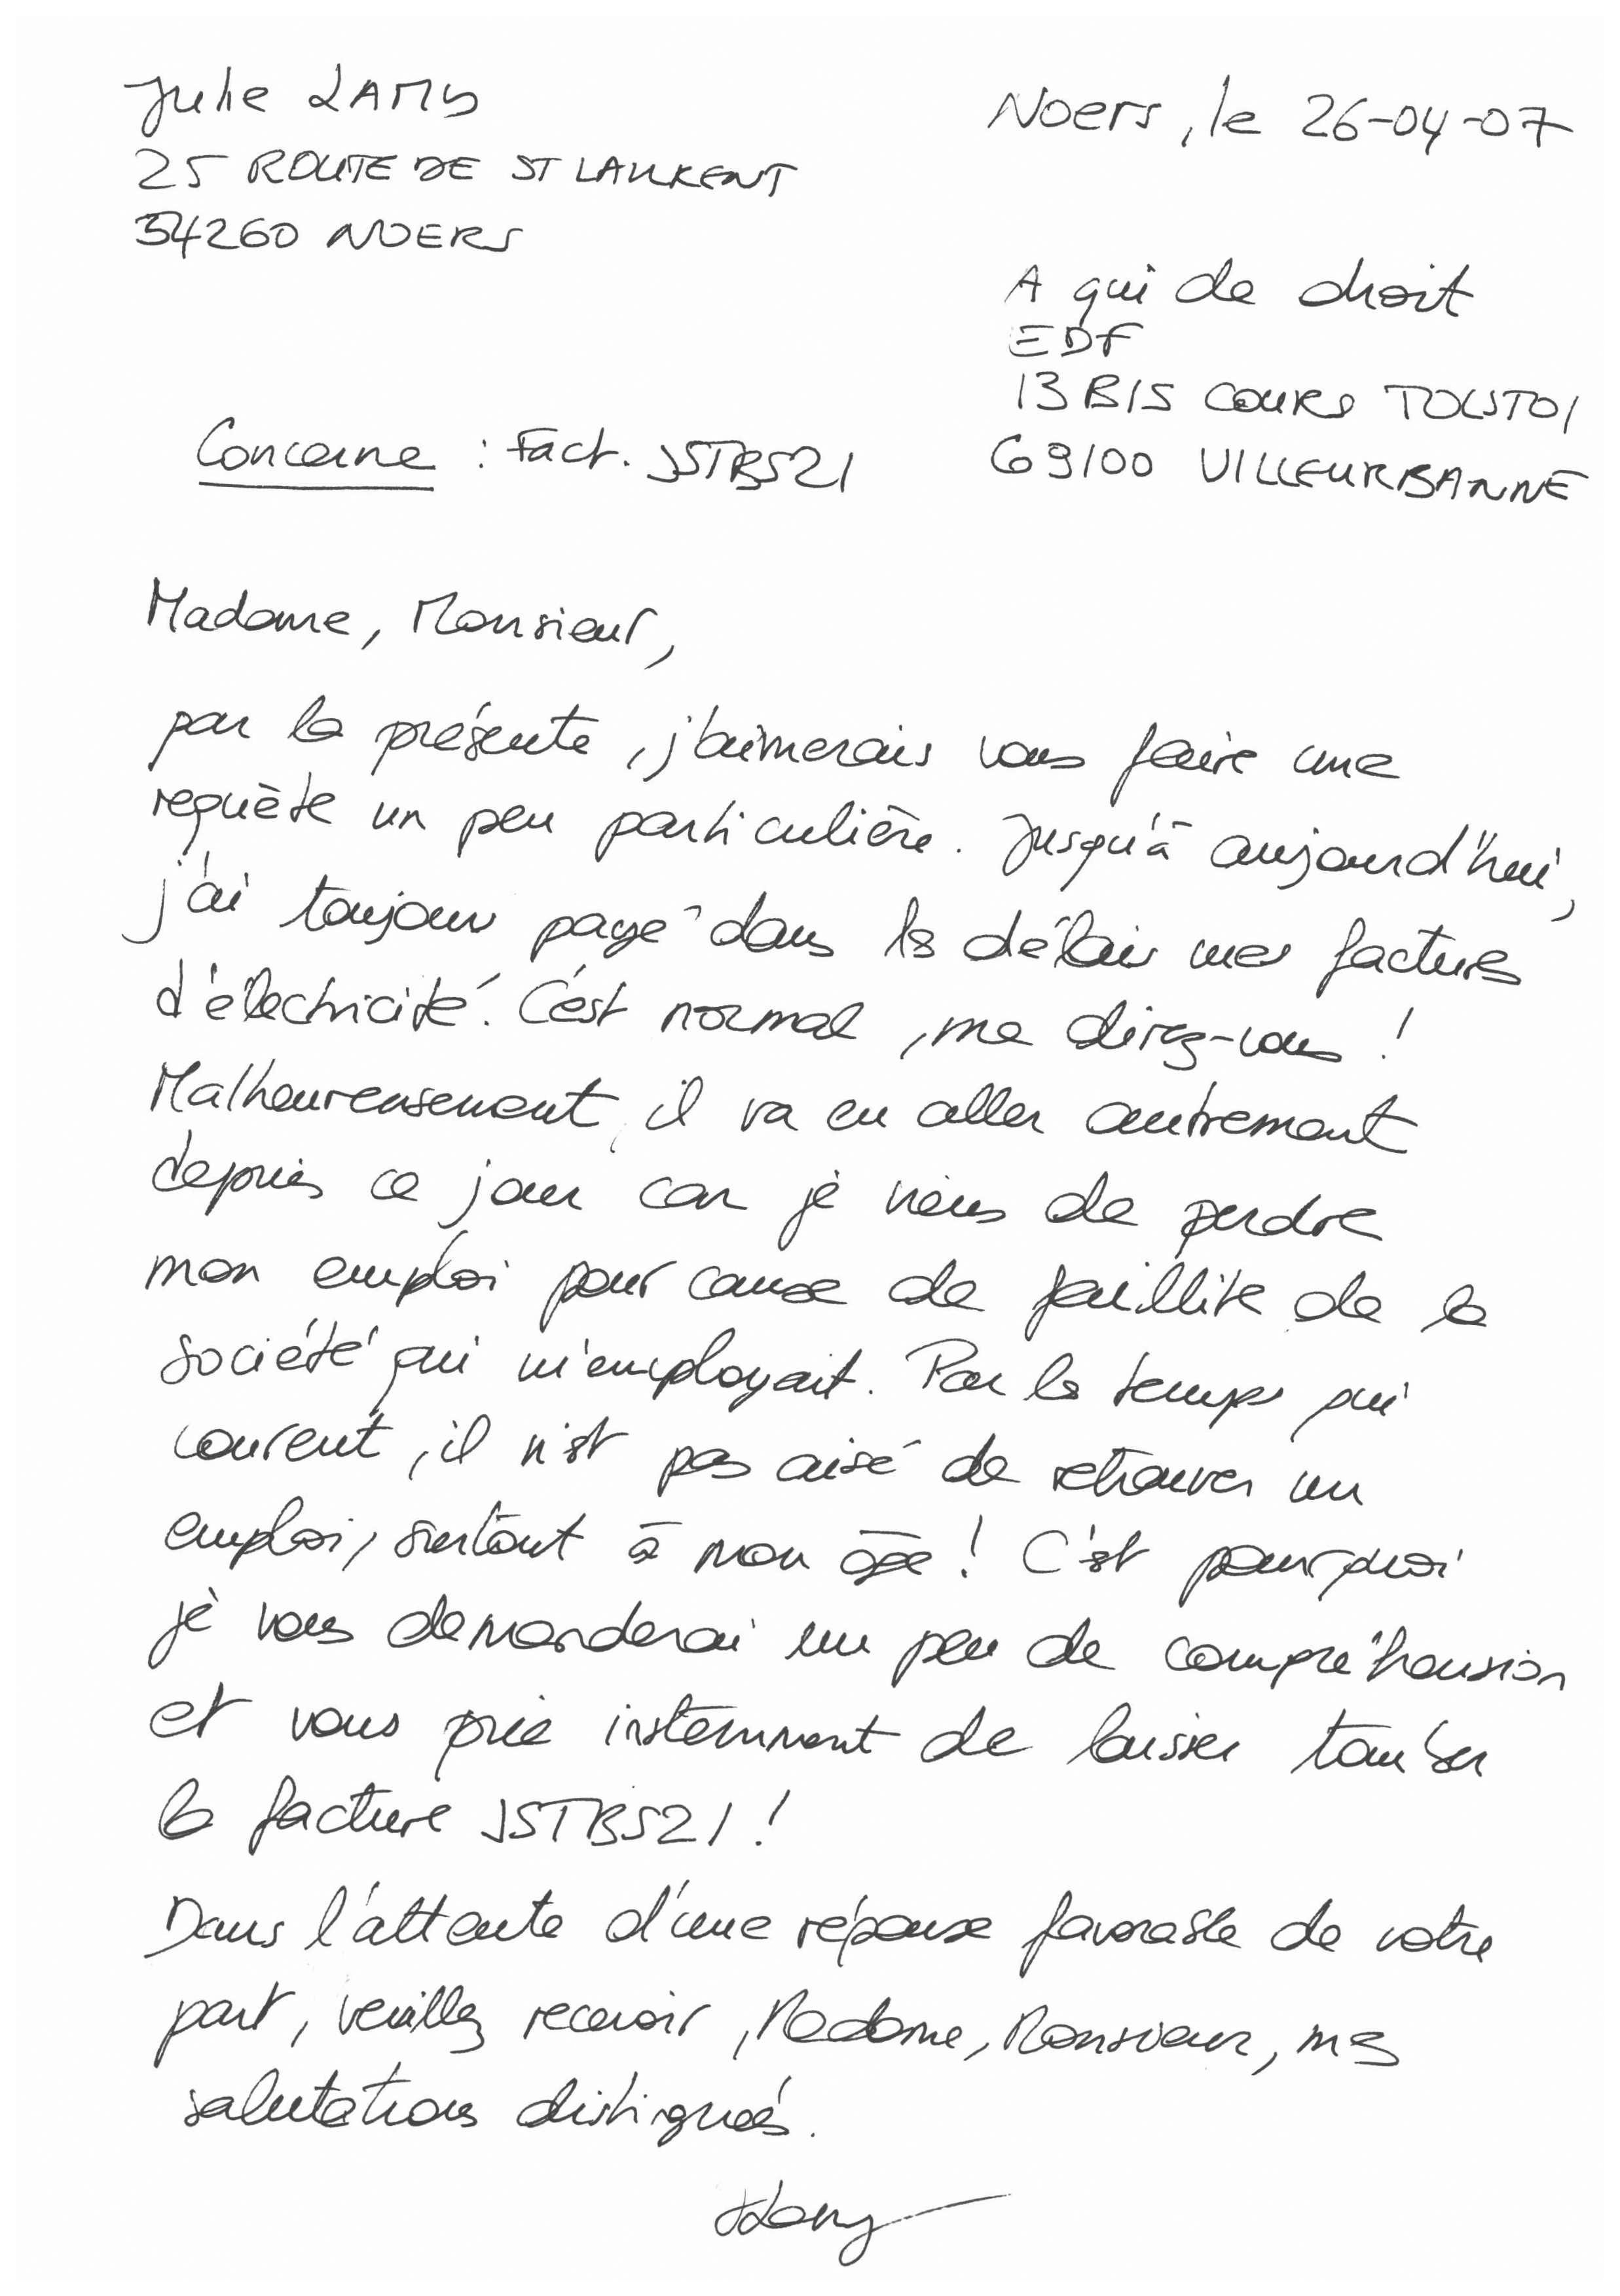 Julie LAMY
25 ROUTE DE ST LAURENT
54260 NOERS
Noers, le 26-04-07
A qui de droit
EDF
13 BIS COURS TOLSTOI
69100 VILLEURBANNE
Concerne : Fact. JSTBS21
Madame, Monsieur,
par la présente, j'aimerais vous faire une
requète un peu particulière. Jusqu'à aujourd'hui,
j'ai toujours payé dans les délais mes factures
d'électricité. C'est normal, me direz-vous !
Malheureusement, il va en aller autrement
depuis ce jour car je viens de perdre
mon emploi pour cause de faillite de la
société qui m'employait. Par les temps qui
courent, il n'est pas aisé de retrouver un
emploi, surtout à mon âge ! C'est pourquoi
je vous demanderai un peu de compréhension
et vous prie instemment de laisser tomber
la facture JSTBS21 !
Dans l'attente d'une réponse favorable de votre
part, veuillez recevoir, Madame, Monsieur, mes
salutations distinguées.
JLamy